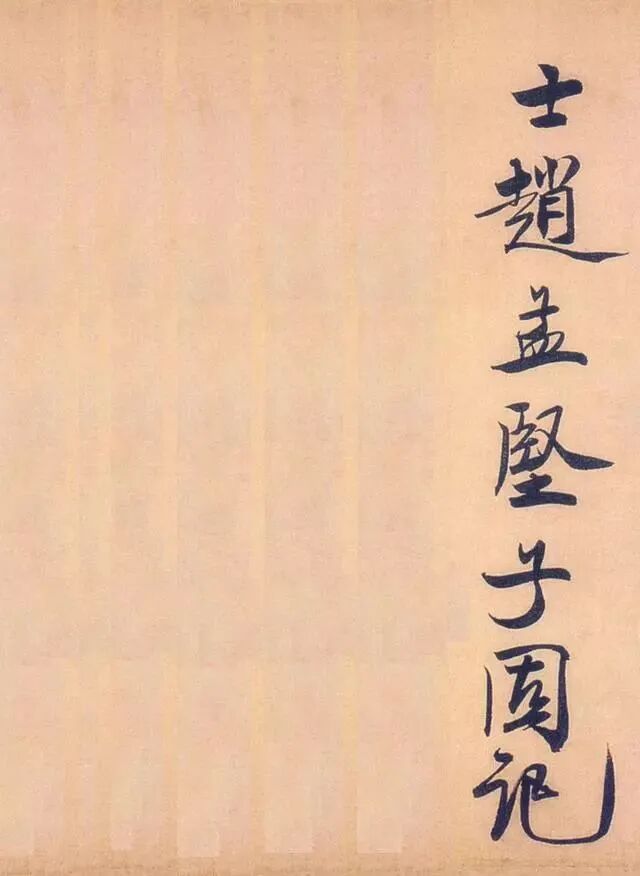 士趙孟堅子固記